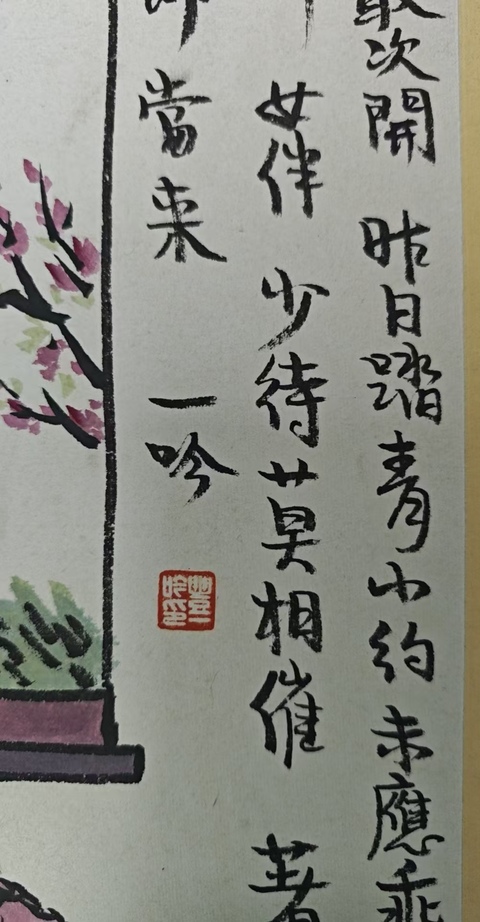 次開 昨日踏青小約未應乖
女伴 少待莫相催 著
當來 一吟
豐一吟印